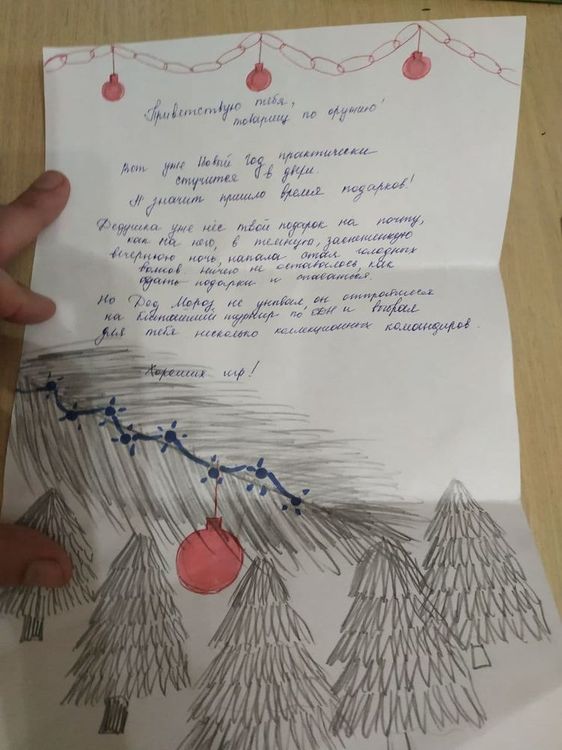 Приветствую тебя,
товарищ по оружию!
Вот уже Новый Год практически
стучится в двери.
А значит пришло время подарков!
Дедушка уже нёс твой подарок на почту,
как на него, в темную, заснеженную
вечернюю ночь, напала стая голодных
волков. Ничего не оставалось, как
отдать подарки и спасаться.
Но Дед Мороз не унывал, он отправился
на ближайший турнир по и выбрал
для тебя несколько коллекционных командиров.
Хороших игр!